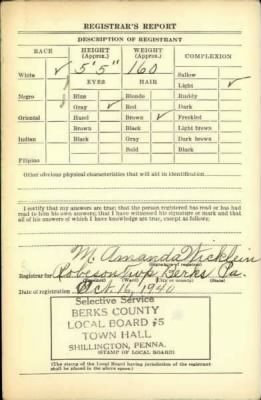 REGISTRAR'S REPORT
DESCRIPTION OF REGISTRANT
RACE HEIGHT (Approx.) WEIGHT (Approx.) COMPLEXION
White ✓ 5' 5" 160 Sallow
EYES HAIR Light ✓
Negro Blue Blonde Ruddy
Gray ✓ Red Dark
Oriental Hazel Brown ✓ Freckled
Brown Black Light brown
Indian Black Gray Dark brown
Bald Black
Filipino
Other obvious physical characteristics that will aid in identification
I certify that my answers are true; that the person registered has read or has had
read to him his own answers; that I have witnessed his signature or mark and that
all of his answers of which I have knowledge are true, except as follows:
M. Amanda Wicklein
(Signature of registrar)
Registrar for Robeson twp. Berks Pa.
(Precinct) (Ward) (City or county) (State)
Date of registration Oct. 16, 1940
Selective Service
BERKS COUNTY
LOCAL BOARD #5
TOWN HALL
SHILLINGTON, PENNA.
(STAMP OF LOCAL BOARD)
(The stamp of the Local Board having jurisdiction of the registrant
shall be placed in the above space.)